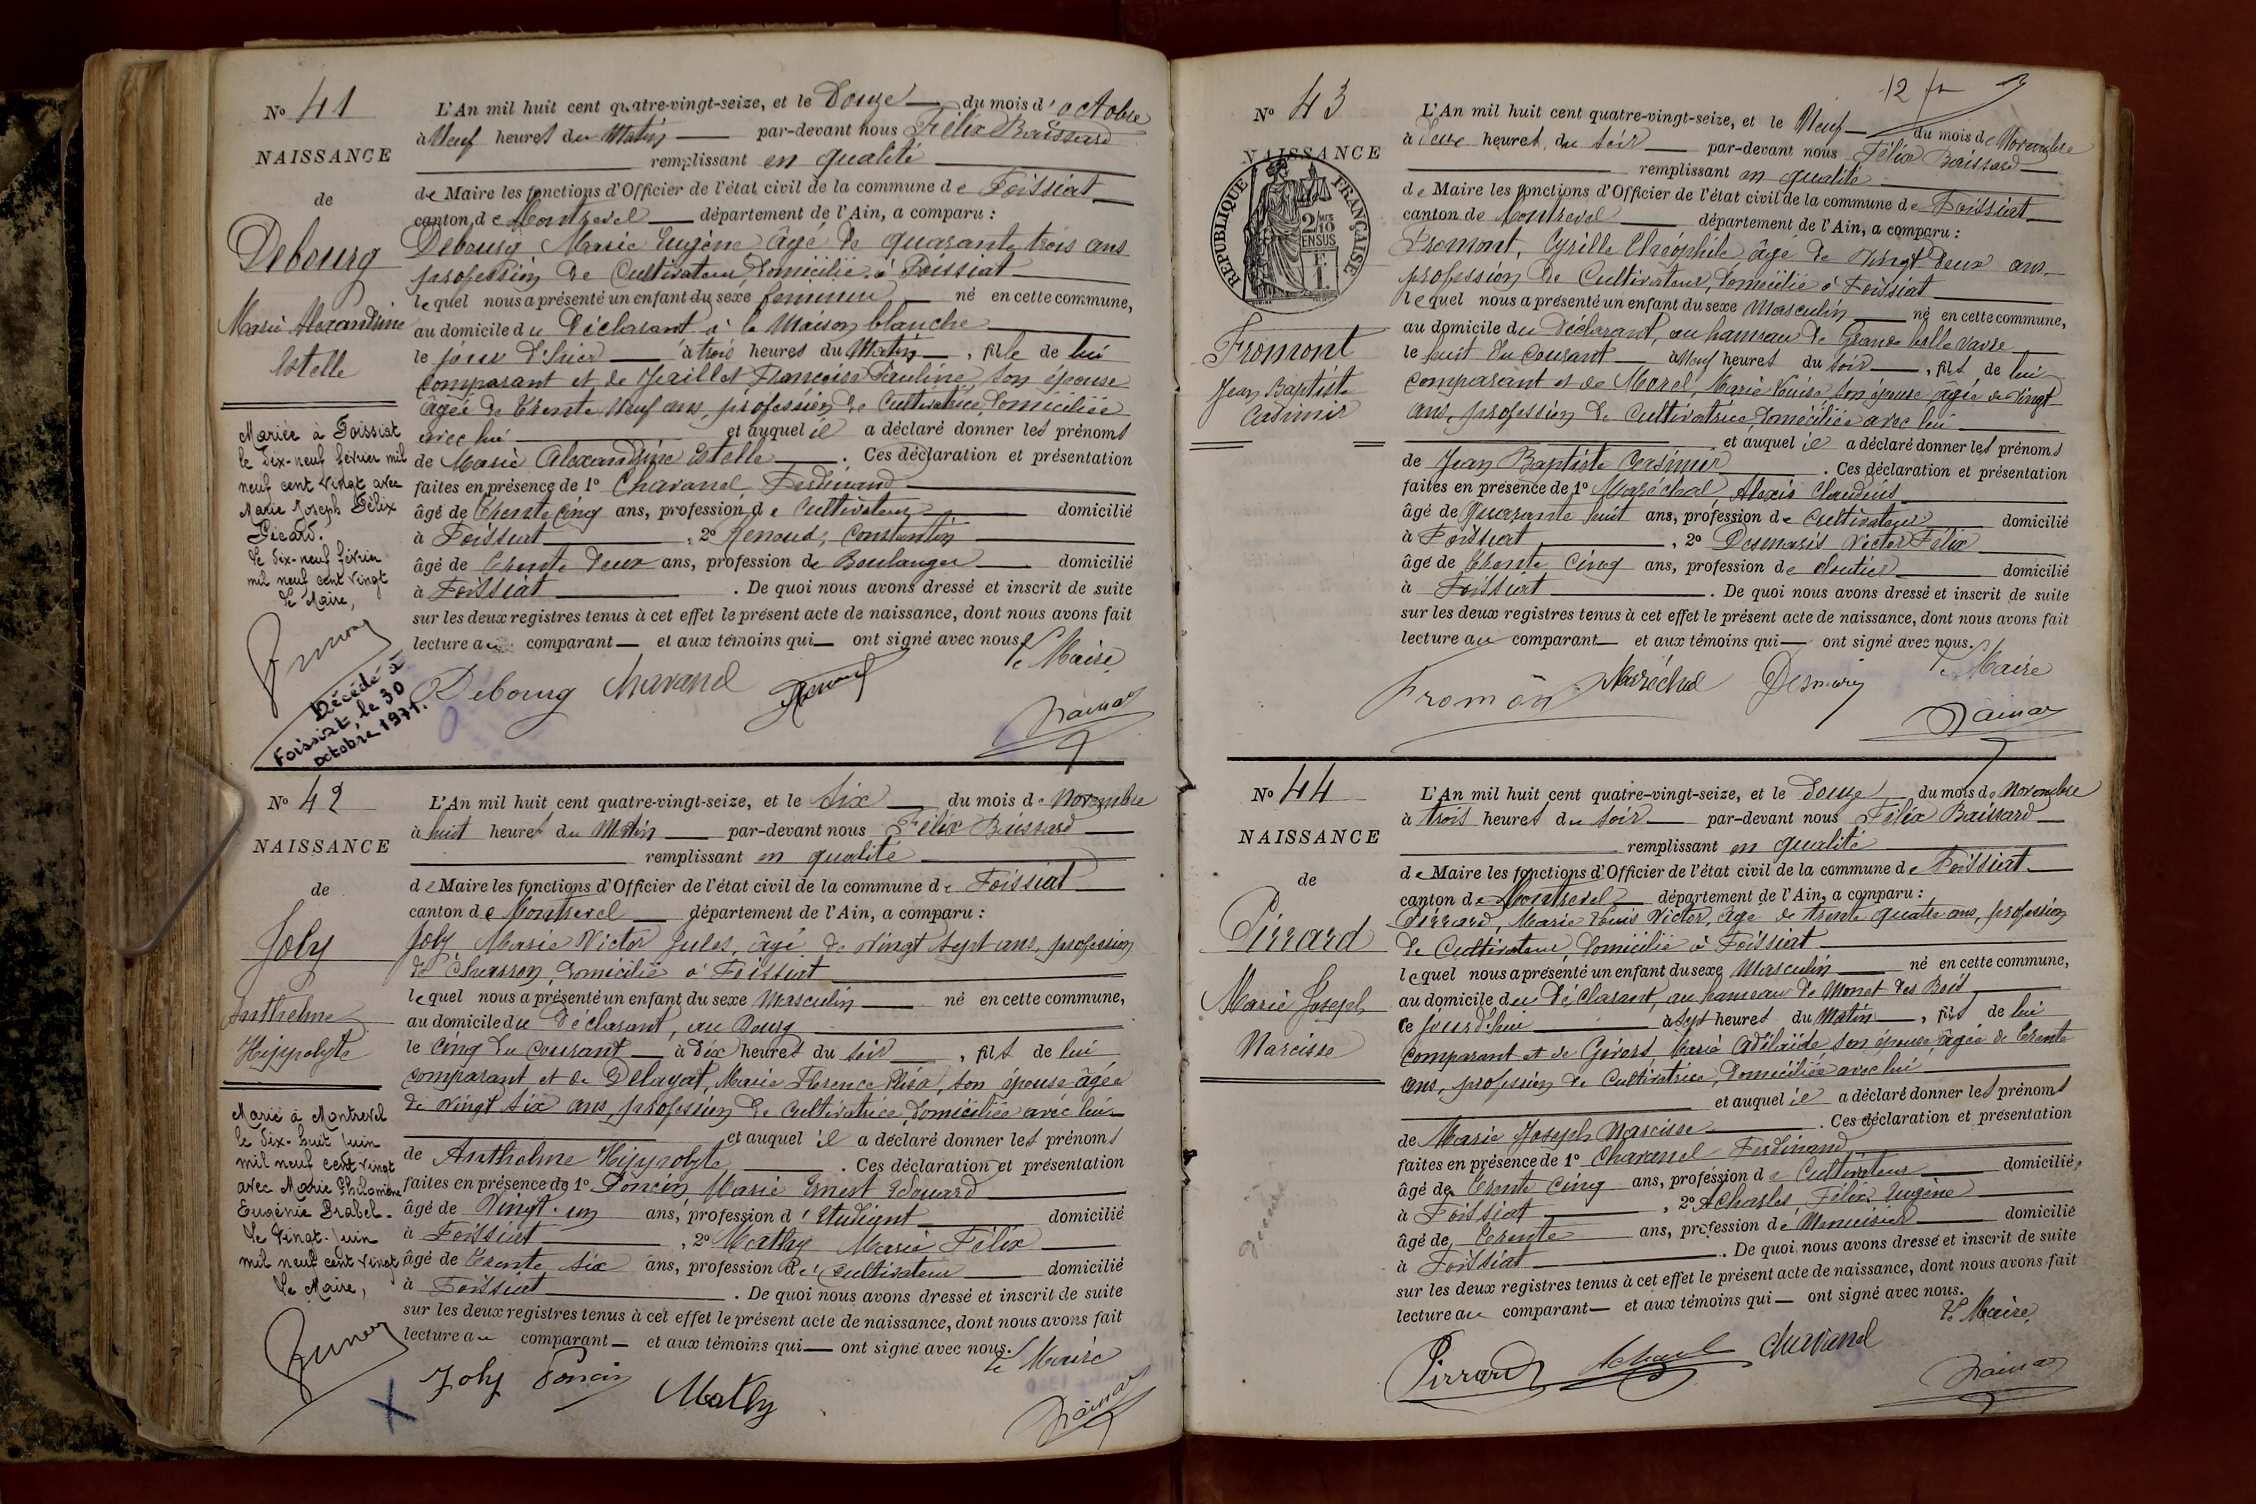 No 41
NAISSANCE
de
Debourg
Marie Alexandrine
Estelle
Mariée à Foissiat
le dix-neuf février mil
neuf cent vingt avec
Marie Joseph Félix
Picard.
Le dix-neuf février
mil neuf cent vingt
Le Maire,
Décédé à
Foissiat, le 30
octobre 1971.
L'An mil huit cent quatre-vingt-seize, et le Douze du mois d'octobre
à Neuf heures du Matin par-devant nous Félix Baissard
remplissant en qualité
de Maire les fonctions d'Officier de l'état civil de la commune de Foissiat
canton de Montrevel département de l'Ain, a comparu :
Debourg Marie Eugène âgé de quarante trois ans
profession de Cultivateur domicilié à Foissiat
lequel nous a présenté un enfant du sexe féminin né en cette commune,
au domicile du Déclarant à la Maison blanche
le jour d'hier à trois heures du Matin, fille de lui
comparant et de Françoise Pauline son épouse
âgée de trente neuf ans, profession de Cultivatrice, domiciliée
avec lui et auquel il a déclaré donner les prénoms
de Marie Alexandrine Estelle. Ces déclaration et présentation
faites en présence de 1° Chavanel Ferdinand
âgé de trente cinq ans, profession de Cultivateur domicilié
à Foissiat, 2° Renoud, Constantin
âgé de trente deux ans, profession de Boulanger domicilié
à Foissiat. De quoi nous avons dressé et inscrit de suite
sur les deux registres tenus à cet effet le présent acte de naissance, dont nous avons fait
lecture au comparant et aux témoins qui ont signé avec nous.
Le Maire
Debourg Chavanel Renoud
No 42
NAISSANCE
de
Joly
Anthelme
Hippolyte
Marié à Montrevel
le dix-huit Juin
mil neuf cent vingt
avec Marie Philomène
Eugénie Brabel.
Le Vingt Juin
mil neuf cent vingt
Le Maire,
L'An mil huit cent quatre-vingt-seize, et le Six du mois de Novembre
à huit heures du Matin par-devant nous Félix Baissard
remplissant en qualité
de Maire les fonctions d'Officier de l'état civil de la commune de Foissiat
canton de Montrevel département de l'Ain, a comparu :
Joly Marie Victor Jules, âgé de vingt sept ans, profession
de Charron, domicilié à Foissiat
lequel nous a présenté un enfant du sexe Masculin né en cette commune,
au domicile du Déclarant, au Bourg
le cinq du courant à dix heures du soir, fils de lui
comparant et de Delayat, Marie Florence Élisa, son épouse âgée
de vingt six ans, profession de cultivatrice domiciliée avec lui
et auquel il a déclaré donner les prénoms
de Anthelme Hippolyte. Ces déclaration et présentation
faites en présence de 1° Poncin Marie Ernest Edouard
âgé de Vingt un ans, profession d'Etudiant domicilié
à Foissiat, 2° Mathy Marie Félix
âgé de trente six ans, profession de cultivateur domicilié
à Foissiat. De quoi nous avons dressé et inscrit de suite
sur les deux registres tenus à cet effet le présent acte de naissance, dont nous avons fait
lecture au comparant et aux témoins qui ont signé avec nous.
Le Maire
Joly Poncin Mathy
12
No 43
NAISSANCE
REPUBLIQUE FRANÇAISE
2/10 EN SUS
Fromont
Jean Baptiste
Casimir
L'An mil huit cent quatre-vingt-seize, et le Neuf du mois de Novembre
à deux heures du soir par-devant nous Félix Baissard
remplissant en qualité
de Maire les fonctions d'Officier de l'état civil de la commune de Foissiat
canton de Montrevel département de l'Ain, a comparu :
Fromont, Cyrille Théophile âgé de vingt deux ans
profession de Cultivateur, domicilié à Foissiat
lequel nous a présenté un enfant du sexe Masculin né en cette commune,
au domicile du Déclarant, au hameau de Grande belle vavre
le huit du courant à Neuf heures du soir, fils de lui
comparant et de Morel, Marie Louise son épouse âgée de vingt
ans, profession de Cultivatrice, domiciliée avec lui
et auquel il a déclaré donner les prénoms
de Jean Baptiste Casimir. Ces déclaration et présentation
faites en présence de 1° Maréchal Alexis Claudius
âgé de Quarante huit ans, profession de Cultivateur domicilié
à Foissiat, 2° Desmaris Victor Félix
âgé de trente cinq ans, profession de cloutier domicilié
à Foissiat. De quoi nous avons dressé et inscrit de suite
sur les deux registres tenus à cet effet le présent acte de naissance, dont nous avons fait
lecture au comparant et aux témoins qui ont signé avec nous.
Le Maire
Fromont Maréchal Desmaris
No 44
NAISSANCE
de
Pirrard
Marie Joseph
Narcisse
L'An mil huit cent quatre-vingt-seize, et le Douze du mois de Novembre
à trois heures du soir par-devant nous Félix Baissard
remplissant en qualité
de Maire les fonctions d'Officier de l'état civil de la commune de Foissiat
canton de Montrevel département de l'Ain, a comparu :
Pirrard, Marie Louis Victor, âgé de trente quatre ans, profession
de Cultivateur, domicilié à Foissiat
lequel nous a présenté un enfant du sexe Masculin né en cette commune,
au domicile du Déclarant, au hameau de Monet des Bois
ce jourd'hui à sept heures du Matin, fils de lui
comparant et de Marie Adélaïde son épouse âgée de trente
ans, profession de Cultivatrice, domiciliée avec lui
et auquel il a déclaré donner les prénoms
de Marie Joseph Narcisse. Ces déclaration et présentation
faites en présence de 1° Chavanel Ferdinand
âgé de trente cinq ans, profession de Cultivateur domicilié
à Foissiat, 2° Acharles, Félix Eugène
âgé de trente ans, profession de Menuisier domicilié
à Foissiat. De quoi nous avons dressé et inscrit de suite
sur les deux registres tenus à cet effet le présent acte de naissance, dont nous avons fait
lecture au comparant et aux témoins qui ont signé avec nous.
Le Maire
Pirrard Chavanel